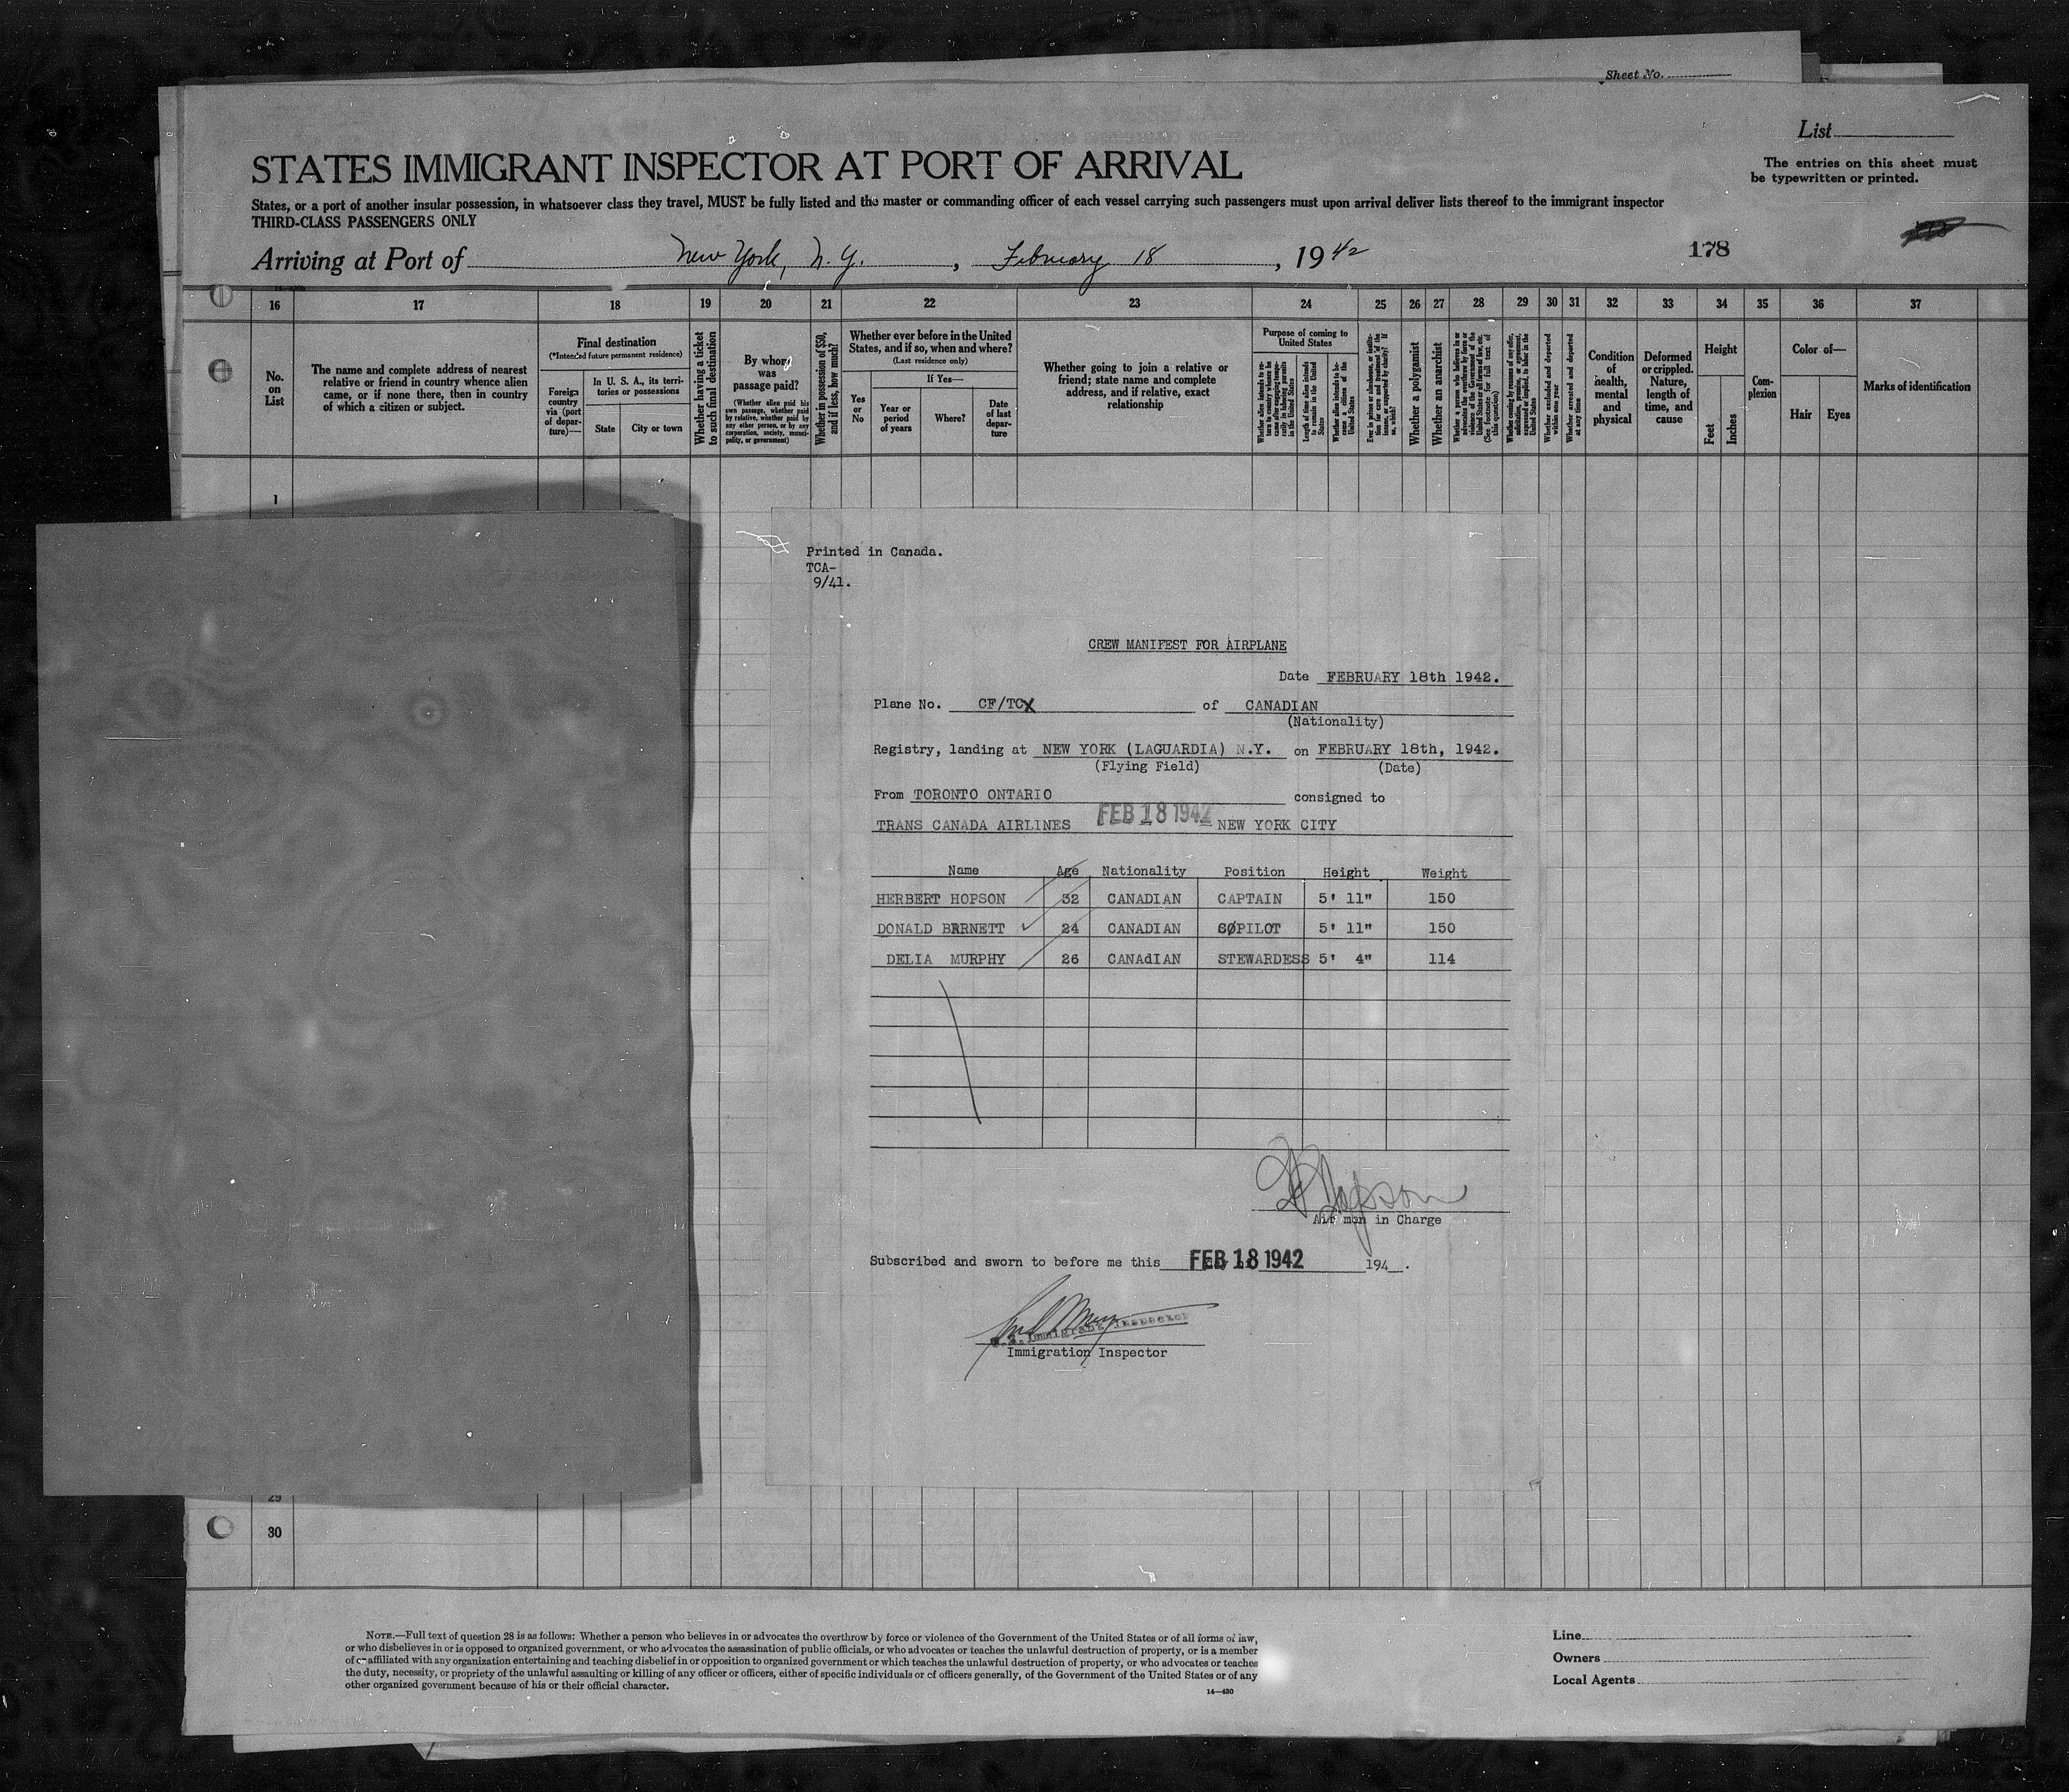 Sheet No.
List
The entries on this sheet must
be typewritten or printed.
STATES IMMIGRANT INSPECTOR AT PORT OF ARRIVAL
States, or a port of another insular possession, in whatsoever class they travel, MUST be fully listed and the master or commanding officer of each vessel carrying such passengers must upon arrival deliver lists thereof to the immigrant inspector
THIRD-CLASS PASSENGERS ONLY
Arriving at Port of New York, N.Y. , February 18 , 1942
178
16 17 18 19 20 21 22 23 24 25 26 27 28 29 30 31 32 33 34 35 36 37
No.
on
List
The name and complete address of nearest
relative or friend in country whence alien
came, or if none there, then in country
of which a citizen or subject.
Final destination
(*Intended future permanent residence)
Foreign
country
via (port
of depar-
ture)—
In U. S. A., its terri-
tories or possessions
State
City or town
Whether having a ticket
to such final destination
By whom
was
passage paid?
(Whether alien paid his
own passage, whether paid
by relative, whether paid by
any other person, or by any
corporation, society, munici-
pality, or government)
Whether in possession of $50,
and if less, how much?
Whether ever before in the United
States, and if so, when and where?
(Last residence only)
If Yes—
Yes
or
No
Year or
period
of years
Where?
Date
of last
depar-
ture
Whether going to join a relative or
friend; state name and complete
address, and if relative, exact
relationship
Purpose of coming to
United States
Length of time alien intends
to remain in the United
States
Whether alien intends to be-
come a citizen of the
United States
Whether a polygamist
Whether an anarchist
Whether excluded and deported
within one year
Whether arrested and deported
at any time
Condition
of
health,
mental
and
physical
Deformed
or crippled.
Nature,
length of
time, and
cause
Height
Feet
Inches
Com-
plexion
Color of—
Hair
Eyes
Marks of identification
1
Printed in Canada.
TCA-
9/41.
CREW MANIFEST FOR AIRPLANE
Date FEBRUARY 18th 1942.
Plane No. CF/TCX of CANADIAN
(Nationality)
Registry, landing at NEW YORK (LAGUARDIA) N.Y. on FEBRUARY 18th, 1942.
(Flying Field) (Date)
From TORONTO ONTARIO consigned to
TRANS CANADA AIRLINES FEB 18 1942 NEW YORK CITY
Name Age Nationality Position Height Weight
HERBERT HOPSON 32 CANADIAN CAPTAIN 5' 11" 150
DONALD BARNETT 24 CANADIAN COPILOT 5' 11" 150
DELIA MURPHY 26 CANAdIAN STEWARDESS 5' 4" 114
H Hopson
Air man in Charge
Subscribed and sworn to before me this FEB 18 1942 194 .
Immigrant Inspector
Immigration Inspector
29
30
NOTE.—Full text of question 28 is as follows: Whether a person who believes in or advocates the overthrow by force or violence of the Government of the United States or of all forms of law,
or who disbelieves in or is opposed to organized government, or who advocates the assassination of public officials, or who advocates or teaches the unlawful destruction of property, or is a member
of or affiliated with any organization entertaining and teaching disbelief in or opposition to organized government or which teaches the unlawful destruction of property, or who advocates or teaches
the duty, necessity, or propriety of the unlawful assaulting or killing of any officer or officers, either of specific individuals or of officers generally, of the Government of the United States or of any
other organized government because of his or their official character.
14—430
Line
Owners
Local Agents